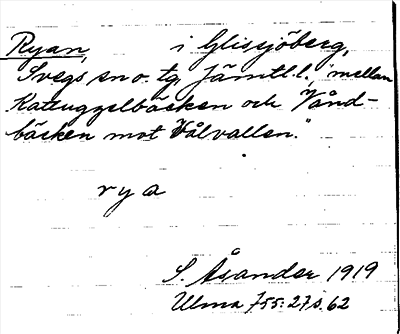 Ryan, i Glissjöberg,
Svegs sn o. tg Jämtl. l. "mellan
Kattuggelbäcken och Vånd-
bäcken mot Vålvallen."
rya
S. Åsander 1919
Ulma 755:27 s. 62